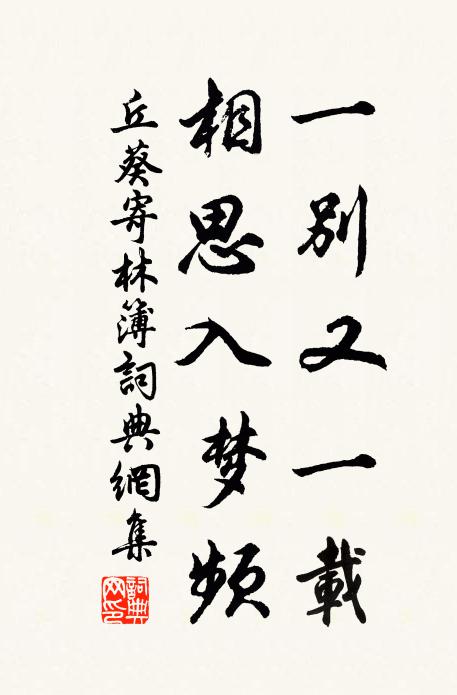 一别又一載
相思入梦頻
丘葵寄林簿詞典網集
詞典网印